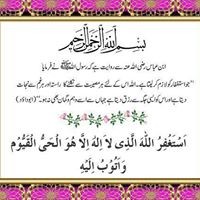 بسم الله الرحمن الرحيم
ابن عباس رضی اللہ عنہ سے روایت ہے کہ رسول اللہ ﷺ نے فرمایا
"جو استغفار کو لازم کر لیتا ہے۔ اللہ اس کے لئے ہر مصیبت سے نکلنے کا راستہ اور ہر غم سے نجات
دیتا ہے اور اس کو ایسی جگہ سے رزق دیتا ہے جہاں سے اسے وہم و گمان بھی نہ ہو۔" (ابوداؤد)
اَسْتَغْفِرُ اللهَ الَّذِى لَا اِلٰهَ اِلَّا هُوَ الْحَىُّ الْقَيُّوْمُ
وَاَتُوْبُ اِلَيْهِ